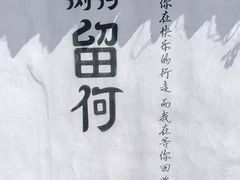 留何
你在快乐的行走 而我在等你回